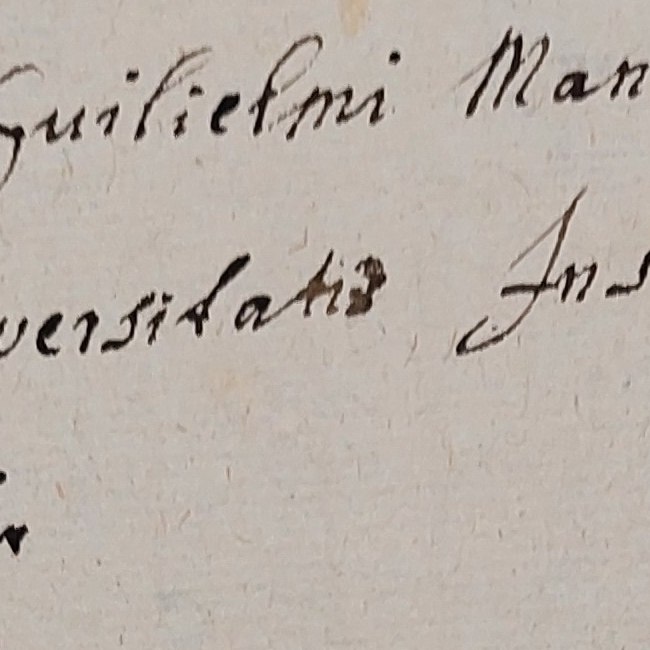 Guilielmi Man
versitatis Ins